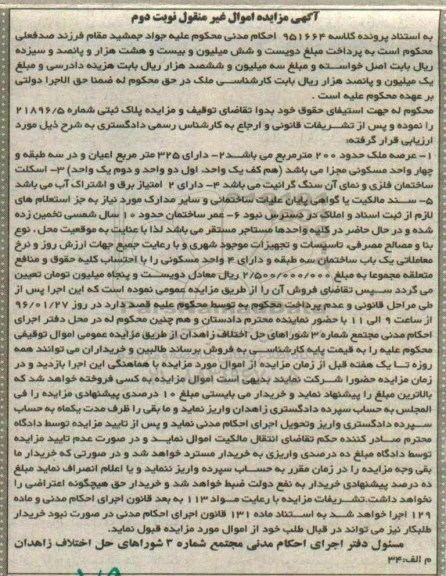 آگهی مزایده اموال غیر منقول نوبت دوم
به استناد پرونده کلاسه ۹۵۱۶۶۴ احکام مدنی محکوم علیه جواد جمشید مقام فرزند صدفعلی
محکوم است به پرداخت مبلغ دویست و شش میلیون و بیست و هشت هزار و پانصد و سیزده
ریال بابت اصل خواسته و مبلغ سه میلیون و ششصد هزار ریال بابت هزینه دادرسی و مبلغ
یک میلیون و پانصد هزار ریال بابت کارشناسی ملک در حق محکوم له ضمنا حق الاجرا دولتی
بر عهده محکوم علیه است .
محکوم له جهت استیفای حقوق خود بدوا تقاضای توقیف و مزایده پلاک ثبتی شماره ۲۱۸۹۶/۵
را نموده و پس از تشریفات قانونی و ارجاع به کارشناس رسمی دادگستری به شرح ذیل مورد
ارزیابی قرار گرفته:
۱- عرصه ملک حدود ۲۰۰ مترمربع می باشد۲- دارای ۳۲۵ متر مربع اعیان و در سه طبقه و
چهار واحد مسکونی مجزا می باشد (هم کف یک واحد، اول دو واحد و دوم یک واحد) ۳- اسکلت
ساختمان فلزی و نمای آن سنگ گرانیت می باشد ۴- دارای ۲ امتیاز برق و اشتراک آب می باشد
۵- سند مالکیت یا گواهی پایان عملیات ساختمانی و سایر مدارک مورد نیاز به جز استعلام های
لازم از ثبت اسناد و املاک در دسترس نبود ۶- عمر ساختمان حدود ۱۰ سال شمسی تخمین زده
شده و در حال حاضر در کلیه واحدها مستاجر مستقر می باشد لذا با عنایت به موقعیت محل ، نوع
بنا و مصالح مصرفی، تاسیسات و تجهیزات موجود شهری و با رعایت جمیع جهات ارزش روز و نرخ
معاملاتی یک باب ساختمان سه طبقه و دارای ۴ واحد مسکونی را با احتساب کلیه حقوق و منافع
متعلقه مجموعا به مبلغ ۲/۵۰۰/۰۰۰/۰۰۰ ریال معادل دویست و پنجاه میلیون تومان تعیین
می گردد سپس تقاضای فروش آن را از طریق مزایده عمومی نموده است که این اجرا پس از
طی مراحل قانونی و عدم پرداخت محکوم به توسط محکوم علیه قصد دارد در روز ۹۶/۰۱/۲۷
از ساعت ۹ الی ۱۱ با حضور نماینده محترم دادستان و هم چنین محکوم له در محل دفتر اجرای
احکام مدنی مجتمع شماره ۳ شوراهای حل اختلاف زاهدان از طریق مزایده عمومی اموال توقیفی
محکوم علیه را به قیمت پایه کارشناسی به فروش برساند طالبین و خریداران می توانند همه
روزه تا یک هفته قبل از زمان مزایده از اموال مورد مزایده با هماهنگی این اجرا بازدید و در
زمان مزایده حضورا شرکت نمایند بدیهی است اموال مزایده به کسی فروخته خواهد شد که
بالاترین مبلغ را پیشنهاد نماید و خریدار می بایستی مبلغ ۱۰ درصدی پیشنهادی مزایده را فی
المجلس به حساب سپرده دادگستری زاهدان واریز نماید و ما بقی را ظرف مدت یکماه به حساب
سپرده دادگستری واریز وتحویل اجرای احکام مدنی نماید و پس از تایید مزایده توسط دادگاه
محترم صادر کننده حکم تقاضای انتقال مالکیت اموال نماید و در صورت عدم تایید مزایده
توسط دادگاه مبلغ ده درصدی واریزی به خریدار مسترد خواهد شد و در صورتی که خریدار ما
بقی وجه مزایده را در زمان مقرر به حساب سپرده واریز ننماید و یا اعلام انصراف نماید مبلغ
ده درصد پیشنهادی خریدار به نفع دولت ضبط خواهد شد و خریدار حق هیچگونه اعتراضی را
نخواهد داشت.تشریفات مزایده با رعایت مواد ۱۱۳ به بعد قانون اجرای احکام مدنی و ماده
۱۲۹ اجرا خواهد شد به استناد ماده ۱۳۱ قانون اجرای احکام مدنی در صورت نبود خریدار
طلبکار نیز می تواند در قبال طلب خود از اموال مورد مزایده قبول نماید.
مسئول دفتر اجرای احکام مدنی مجتمع شماره ۳ شوراهای حل اختلاف زاهدان
م الف:۳۴